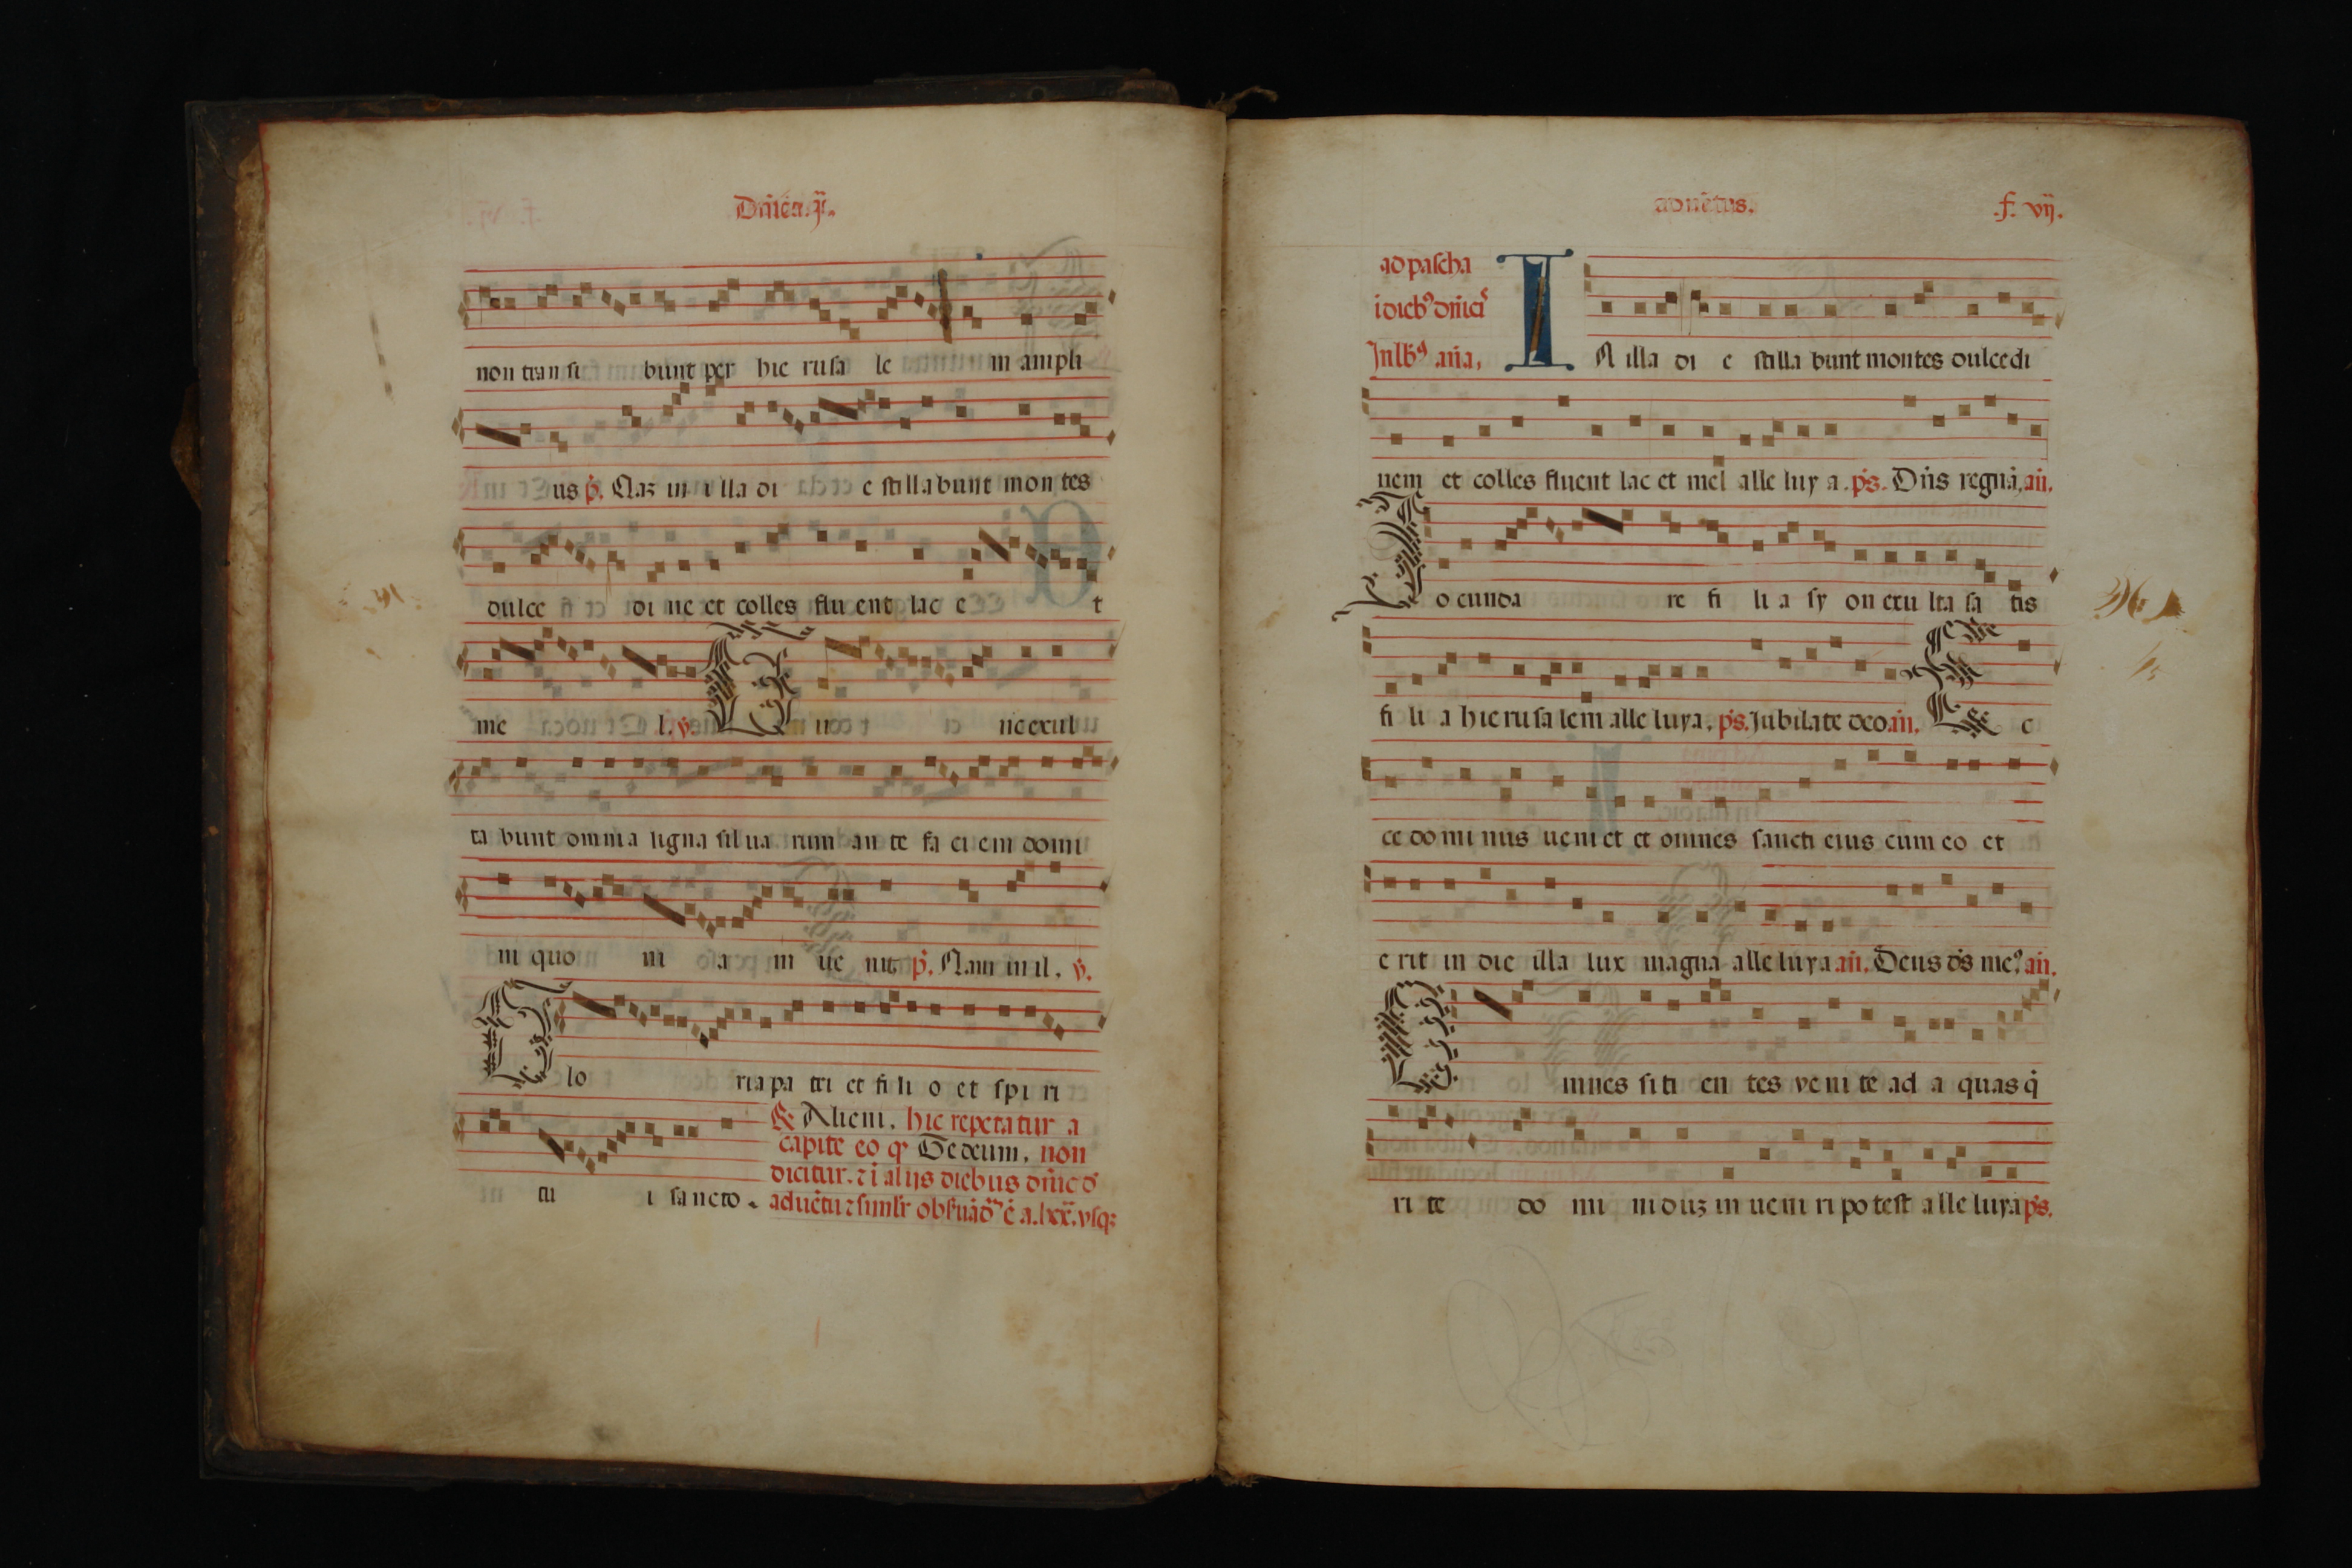 Dn̄ica .j.
non tran si bunt per hie rusa le m ampli
us p̄. Naz in i lla di e stilla bunt mon tes
dulce di ne et colles flu ent lac e t
me l. ỹ. T u nc exul
ta bunt omnia ligna sil ua rum an te fa ci em domi
ni quo ni a m ue nit p̄. Nam in il. ỹ.
G lo ria pa tri et fi li o et spi ri
tu i sancto.
R̄ Alieni. hic repetatur a
capite eo qr Te deum. non
dicitur. ⁊ i alijs diebus dn̄ic
aduētus.
.f. vij.
ad pascha
i dieb⁹ dn̄ici
In lb̄ an̄a.
I N illa di e stilla bunt montes dulcedi
nem et colles fluent lac et mel alle luy a. ps. Dn̄s regna. an̄.
I o cunda re fi li a sy on exu lta sa tis
fi li a hie ru sa lem alle luya. ps. Jubilate deo. an̄. E c
ce do mi nus ueni et et omnes sancti eius cum eo et
e rit in die illa lux magna alle luya an̄. Deus ds̄ me⁹. an̄.
O mnes si ti en tes ve ni te ad a quas q̄
ri te do mi n duz in ueni ri po test alle luya ps.